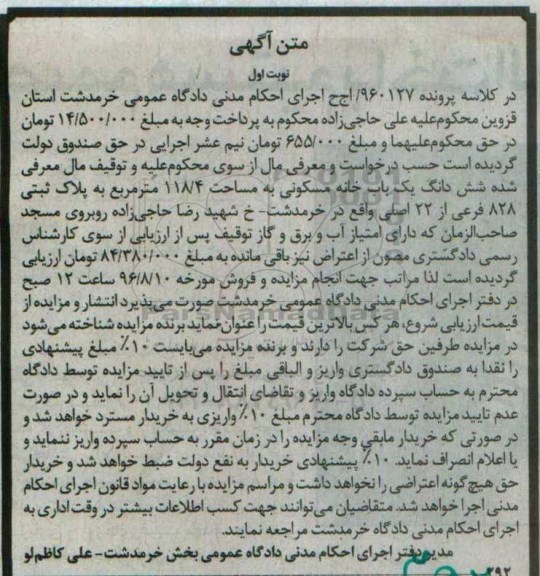 متن آگهی
نوبت اول
در کلاسه پرونده ۹۶۰۱۲۷/ اجح اجرای احکام مدنی دادگاه عمومی خرمدشت استان
قزوین محکوم‌علیه علی حاجی‌زاده محکوم به پرداخت وجه به مبلغ ۱۴/۵۰۰/۰۰۰ تومان
در حق محکوم‌علیهما و مبلغ ۶۵۵/۰۰۰ تومان نیم عشر اجرایی در حق صندوق دولت
گردیده است حسب درخواست و معرفی مال از سوی محکوم‌علیه و توقیف مال معرفی
شده شش دانگ یک باب خانه مسکونی به مساحت ۱۱۸/۴ مترمربع به پلاک ثبتی
۸۲۸ فرعی از ۲۲ اصلی واقع در خرمدشت- خ شهید رضا حاجی‌زاده روبروی مسجد
صاحب‌الزمان که دارای امتیاز آب و برق و گاز توقیف پس از ارزیابی از سوی کارشناس
رسمی دادگستری مصون از اعتراض نیز باقی مانده به مبلغ ۸۴/۳۸۰/۰۰۰ تومان ارزیابی
گردیده است لذا مراتب جهت انجام مزایده و فروش مورخه ۹۶/۸/۱۰ ساعت ۱۲ صبح
در دفتر اجرای احکام مدنی دادگاه عمومی خرمدشت صورت می‌پذیرد انتشار و مزایده از
قیمت ارزیابی شروع، هر کس بالاترین قیمت را عنوان نماید برنده مزایده شناخته می‌شود
در مزایده طرفین حق شرکت را دارند و برنده مزایده می‌بایست ۱۰٪ مبلغ پیشنهادی
را نقدا به صندوق دادگستری واریز و الباقی مبلغ را پس از تایید مزایده توسط دادگاه
محترم به حساب سپرده دادگاه واریز و تقاضای انتقال و تحویل آن را نماید و در صورت
عدم تایید مزایده توسط دادگاه محترم مبلغ ۱۰٪ واریزی به خریدار مسترد خواهد شد و
در صورتی که خریدار مابقی وجه مزایده را در زمان مقرر به حساب سپرده واریز ننماید و
یا اعلام انصراف نماید. ۱۰٪ پیشنهادی خریدار به نفع دولت ضبط خواهد شد و خریدار
حق هیچ‌گونه اعتراضی را نخواهد داشت و مراسم مزایده با رعایت مواد قانون اجرای احکام
مدنی اجرا خواهد شد. متقاضیان می‌توانند جهت کسب اطلاعات بیشتر در وقت اداری به
اجرای احکام مدنی دادگاه خرمدشت مراجعه نمایند.
مدیر دفتر اجرای احکام مدنی دادگاه عمومی بخش خرمدشت- علی کاظم‌لو
۲۹۲
ParsNamadData